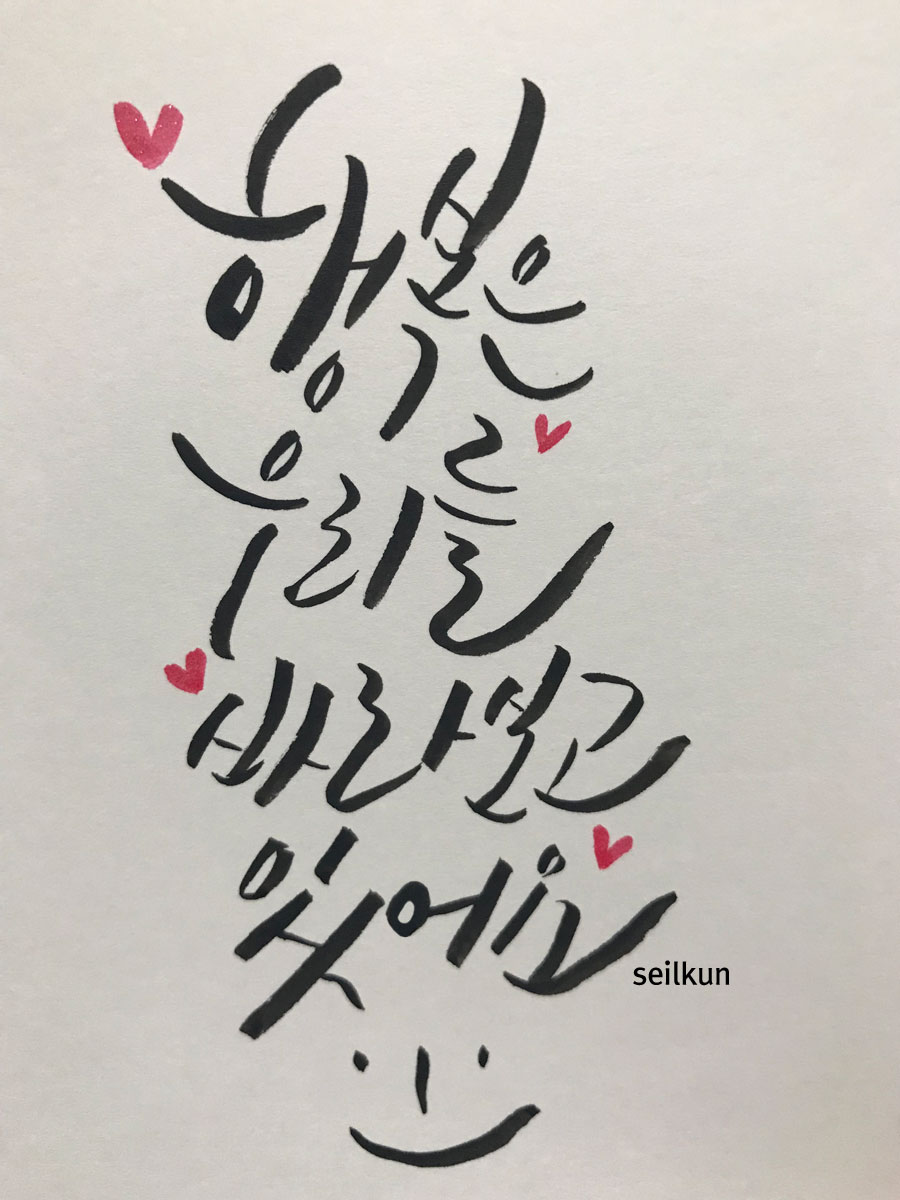 행복은
우리를
바라보고
있어요
seilkun